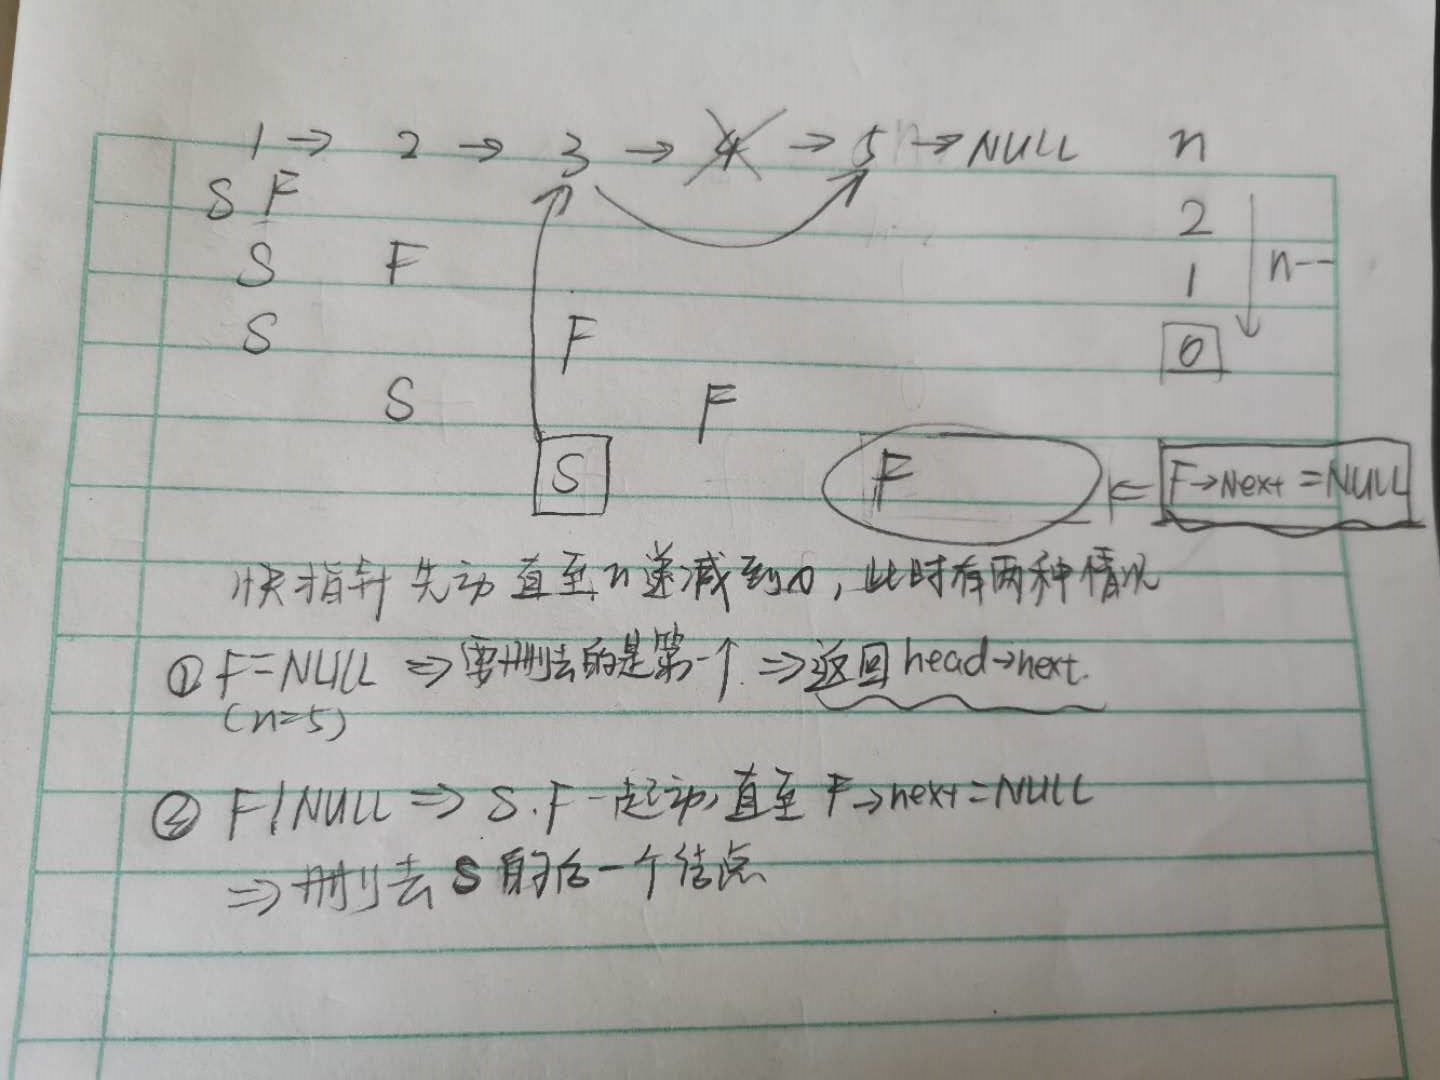 1 → 2 → 3 → 4 → 5 → NULL n
S F 2
S F 1 n--
S F 0
S F
S F ← F→Next=NULL
快指针先动直至n递减到0,此时有两种情况
① F=NULL ⇒ 要删去的是第一个 ⇒ 返回 head→next.
(n=5)
② F/NULL ⇒ S.F一起动,直至 F→next=NULL
⇒ 删去 S 的后一个结点